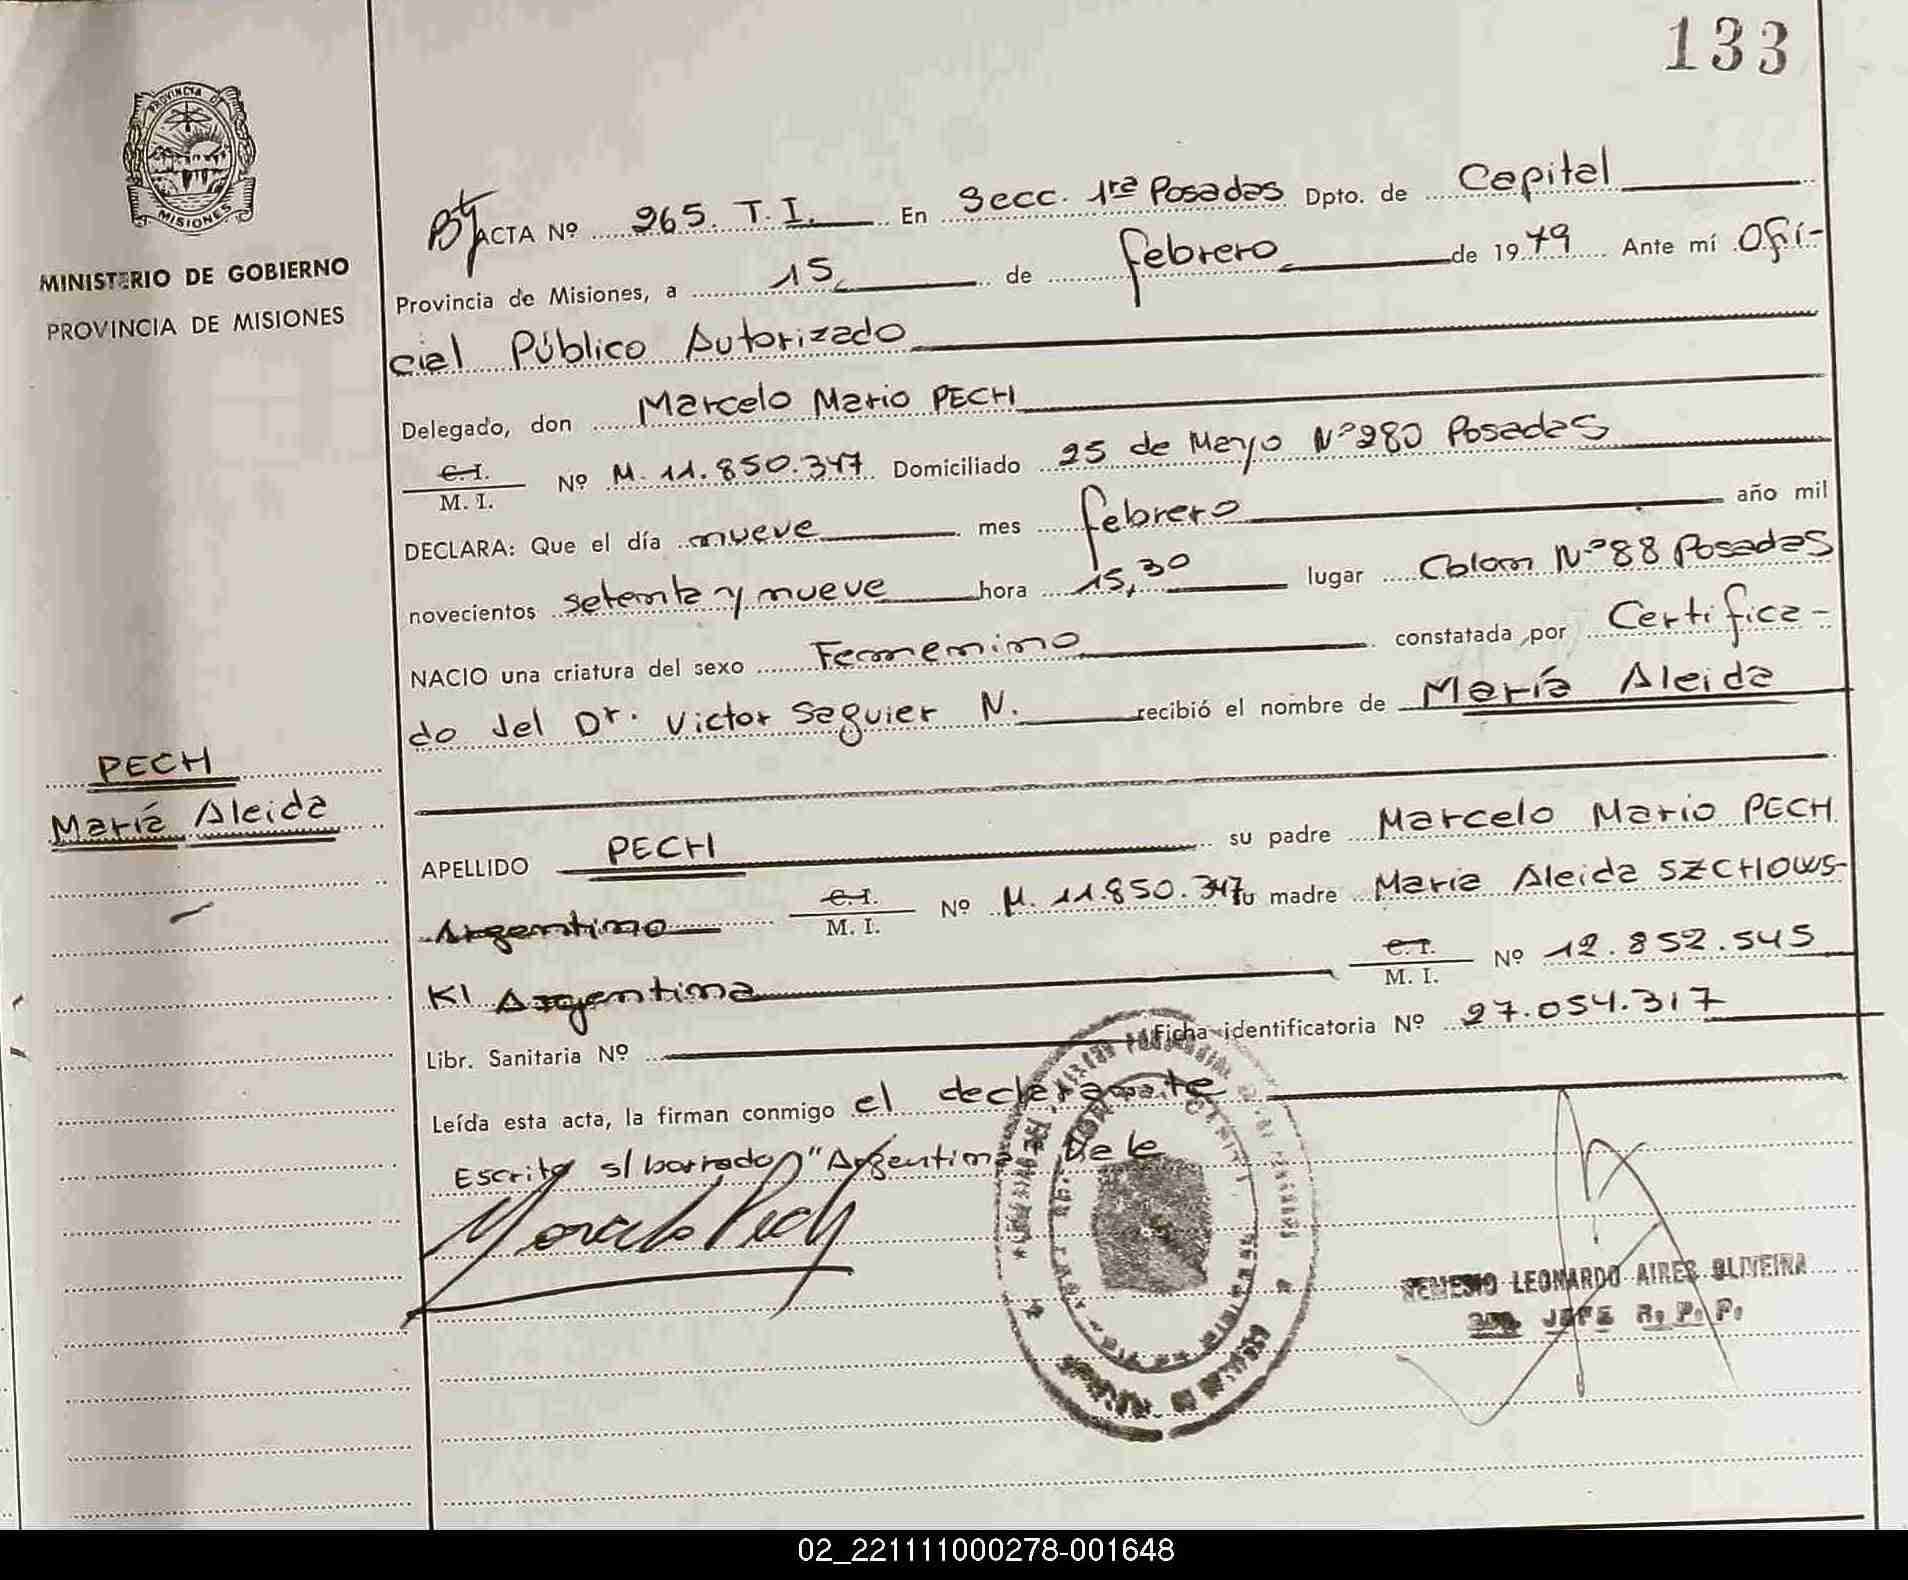 133
PROVINCIA DE
MISIONES
MINISTERIO DE GOBIERNO
PROVINCIA DE MISIONES
ACTA Nº 265. T. I. En Secc. 1ra Posadas Dpto. de Capital
Provincia de Misiones, a 15 de febrero de 1979 Ante mí Ofi-
cial Público Autorizado
Delegado, don Marcelo Mario PECH
C.I.
M. I. Nº M. 11.850.347 Domiciliado 25 de Mayo Nº 280 Posadas
DECLARA: Que el día nueve mes febrero año mil
novecientos setenta y nueve hora 15,30 lugar Colon Nº 88 Posadas
NACIO una criatura del sexo Femenino constatada por Certifica-
do del Dr. Victor Seguier N. recibió el nombre de María Aleida
PECH
María Aleida
APELLIDO PECH su padre Marcelo Mario PECH
Argentino C.I.
M. I. Nº M. 11.850.347 su madre María Aleida SZCHOWS-
KI Argentina C.I.
M. I. Nº 12.852.545
Libr. Sanitaria Nº Ficha identificatoria Nº 27.054.317
Leída esta acta, la firman conmigo el declarante
Escrito s/ borrado "Argentina" Vale
Marcelo Pech
NEMESIO LEONARDO AIRES OLIVEIRA
JEFE R. P. P.
02_221111000278-001648